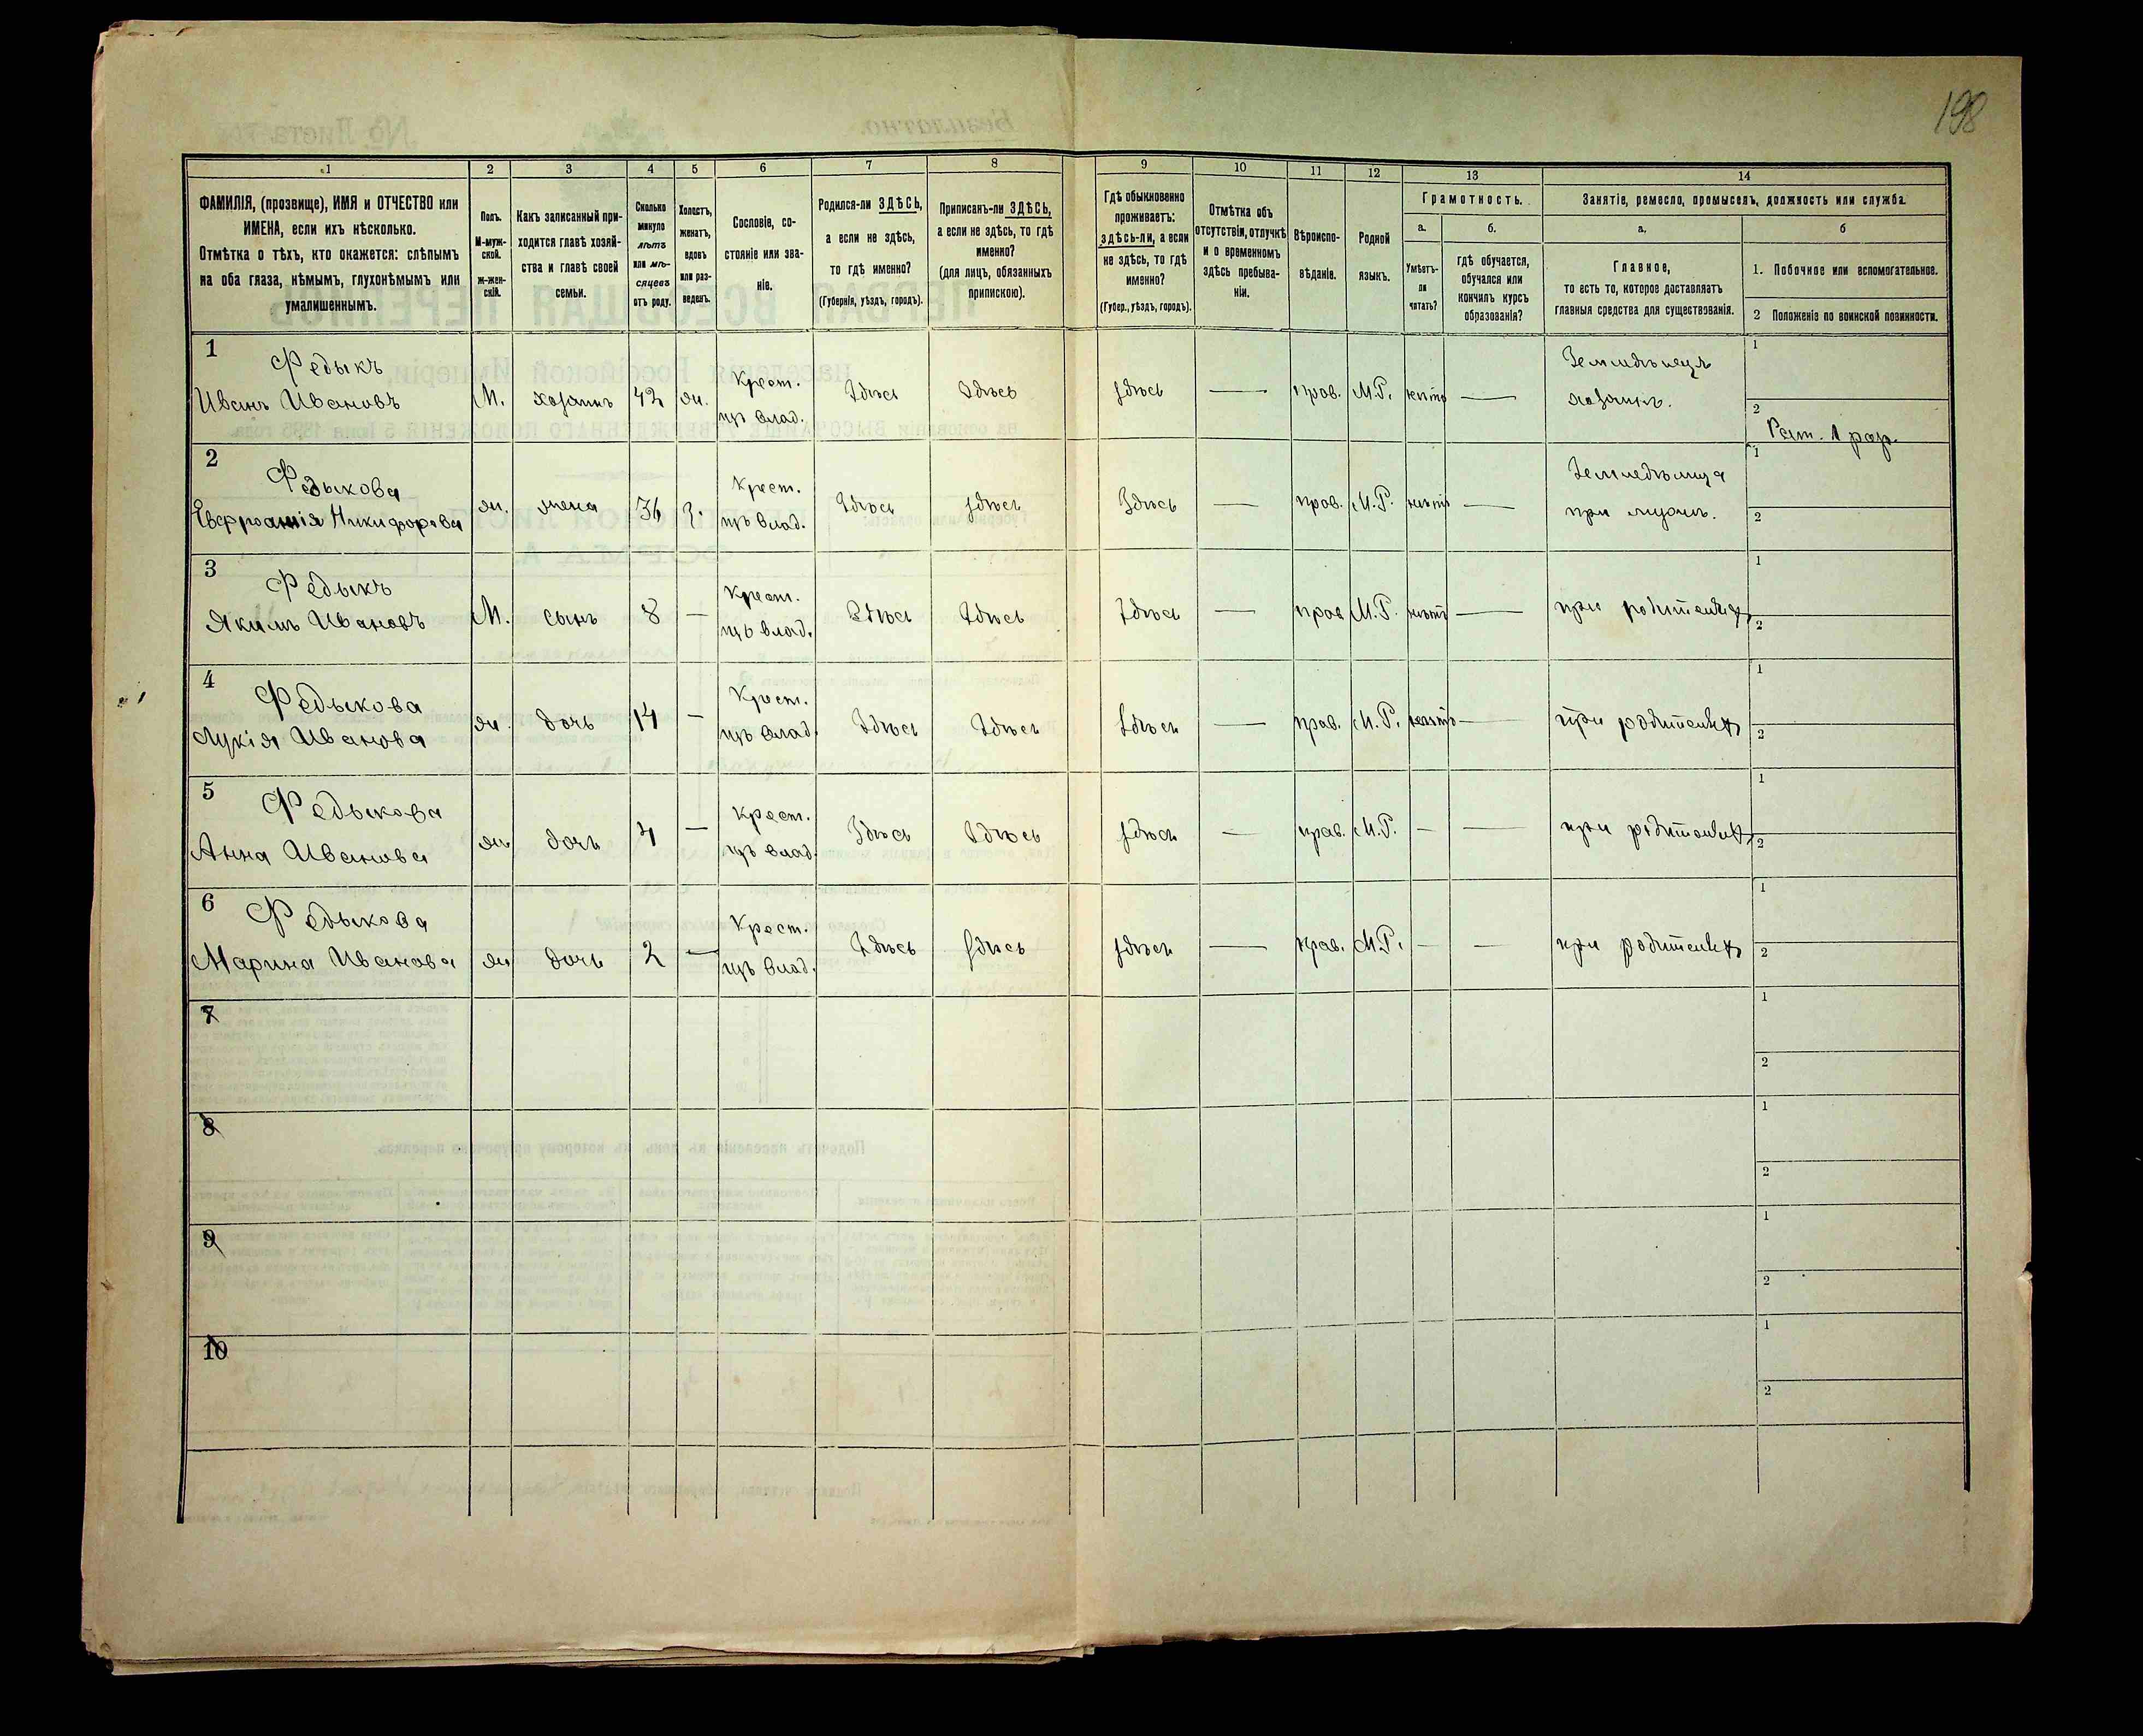 198
1
2
3
4
5
6
7
8
9
10
11
12
13
14
ФАМИЛІЯ, (прозвище), ИМЯ и ОТЧЕСТВО или
ИМЕНА, если ихъ нѣсколько.
Отмѣтка о тѣхъ, кто окажется: слѣпымъ
на оба глаза, нѣмымъ, глухонѣмымъ или
умалишеннымъ.
Полъ.
М-муж-
ской.
ж-жен-
скій.
Какъ записанный при-
ходится главѣ хозяй-
ства и главѣ своей
семьи.
Сколько
минуло
лѣтъ
или мѣ-
сяцевъ
отъ роду.
Холостъ,
женатъ,
вдовъ
или раз-
веденъ.
Сословіе, со-
стояніе или зва-
ніе.
Родился-ли ЗДѢСЬ,
а если не здѣсь,
то гдѣ именно?
(Губернія, уѣздъ, городъ).
Приписанъ-ли ЗДѢСЬ,
а если не здѣсь, то гдѣ
именно?
(для лицъ, обязанныхъ
припискою).
Гдѣ обыкновенно
проживаетъ:
здѣсь-ли, а если
не здѣсь, то гдѣ
именно?
(Губер., уѣздъ, городъ).
Отмѣтка объ
отсутствіи, отлучкѣ
и о временномъ
здѣсь пребыва-
ніи.
Вѣроиспо-
вѣданіе.
Родной
языкъ.
Грамотность.
а.
Умѣетъ-
ли
читать?
б.
гдѣ обучается,
обучался или
кончилъ курсъ
образованія?
Занятіе, ремесло, промыселъ, должность или служба.
а.
Главное,
то есть то, которое доставляетъ
главныя средства для существованія.
б
1. Побочное или вспомогательное.
2 Положеніе по воинской повинности.
1 Федыкъ
Иванъ Ивановъ
М.
хозяинъ
42
жн.
Крест.
изъ влад.
Здѣсь
Здѣсь
Здѣсь
—
прав.
М.Р.
нѣтъ
—
Земледѣлецъ
хозяинъ.
1
2
Рат. 1 раз.
2 Федыкова
Евфросинія Никифорова
жн.
жена
36
з.
Крест.
изъ влад.
Здѣсь
Здѣсь
Здѣсь
—
прав.
М.Р.
нѣтъ
—
Земледѣлица
при мужѣ.
1
2
3 Федыкъ
Якимъ Ивановъ
М.
сынъ
8
—
Крест.
изъ влад.
Здѣсь
Здѣсь
Здѣсь
—
прав
М.Р.
нѣтъ
—
при родителяхъ
1
2
4 Федыкова
Лукія Иванова
жн
дочь
14
—
Крест.
изъ влад
Здѣсь
Здѣсь
Здѣсь
—
прав.
М.Р.
нѣтъ
—
при родителяхъ
1
2
5 Федыкова
Анна Иванова
жн
дочь
4
—
Крест.
изъ влад.
Здѣсь
Здѣсь
Здѣсь
—
прав.
М.Р.
—
—
при родителяхъ
1
2
6 Федыкова
Марина Иванова
жн
дочь
2
—
Крест.
изъ влад.
Здѣсь
Здѣсь
Здѣсь
—
прав.
М.Р.
—
—
при родителяхъ
1
2
7
1
2
8
1
2
9
1
2
10
1
2